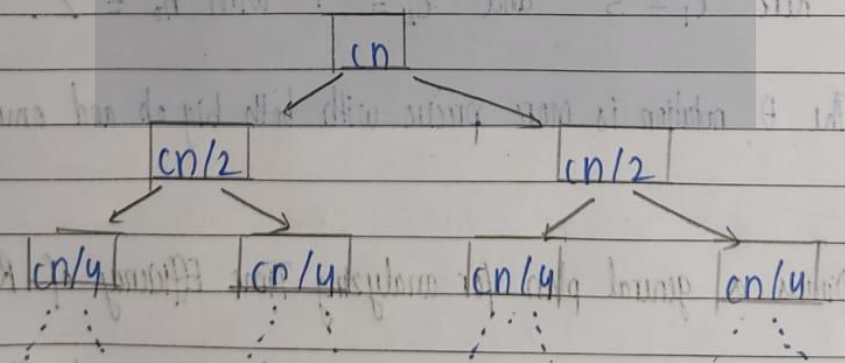 cn
cn/2 cn/2
cn/4 cn/4 cn/4 cn/4